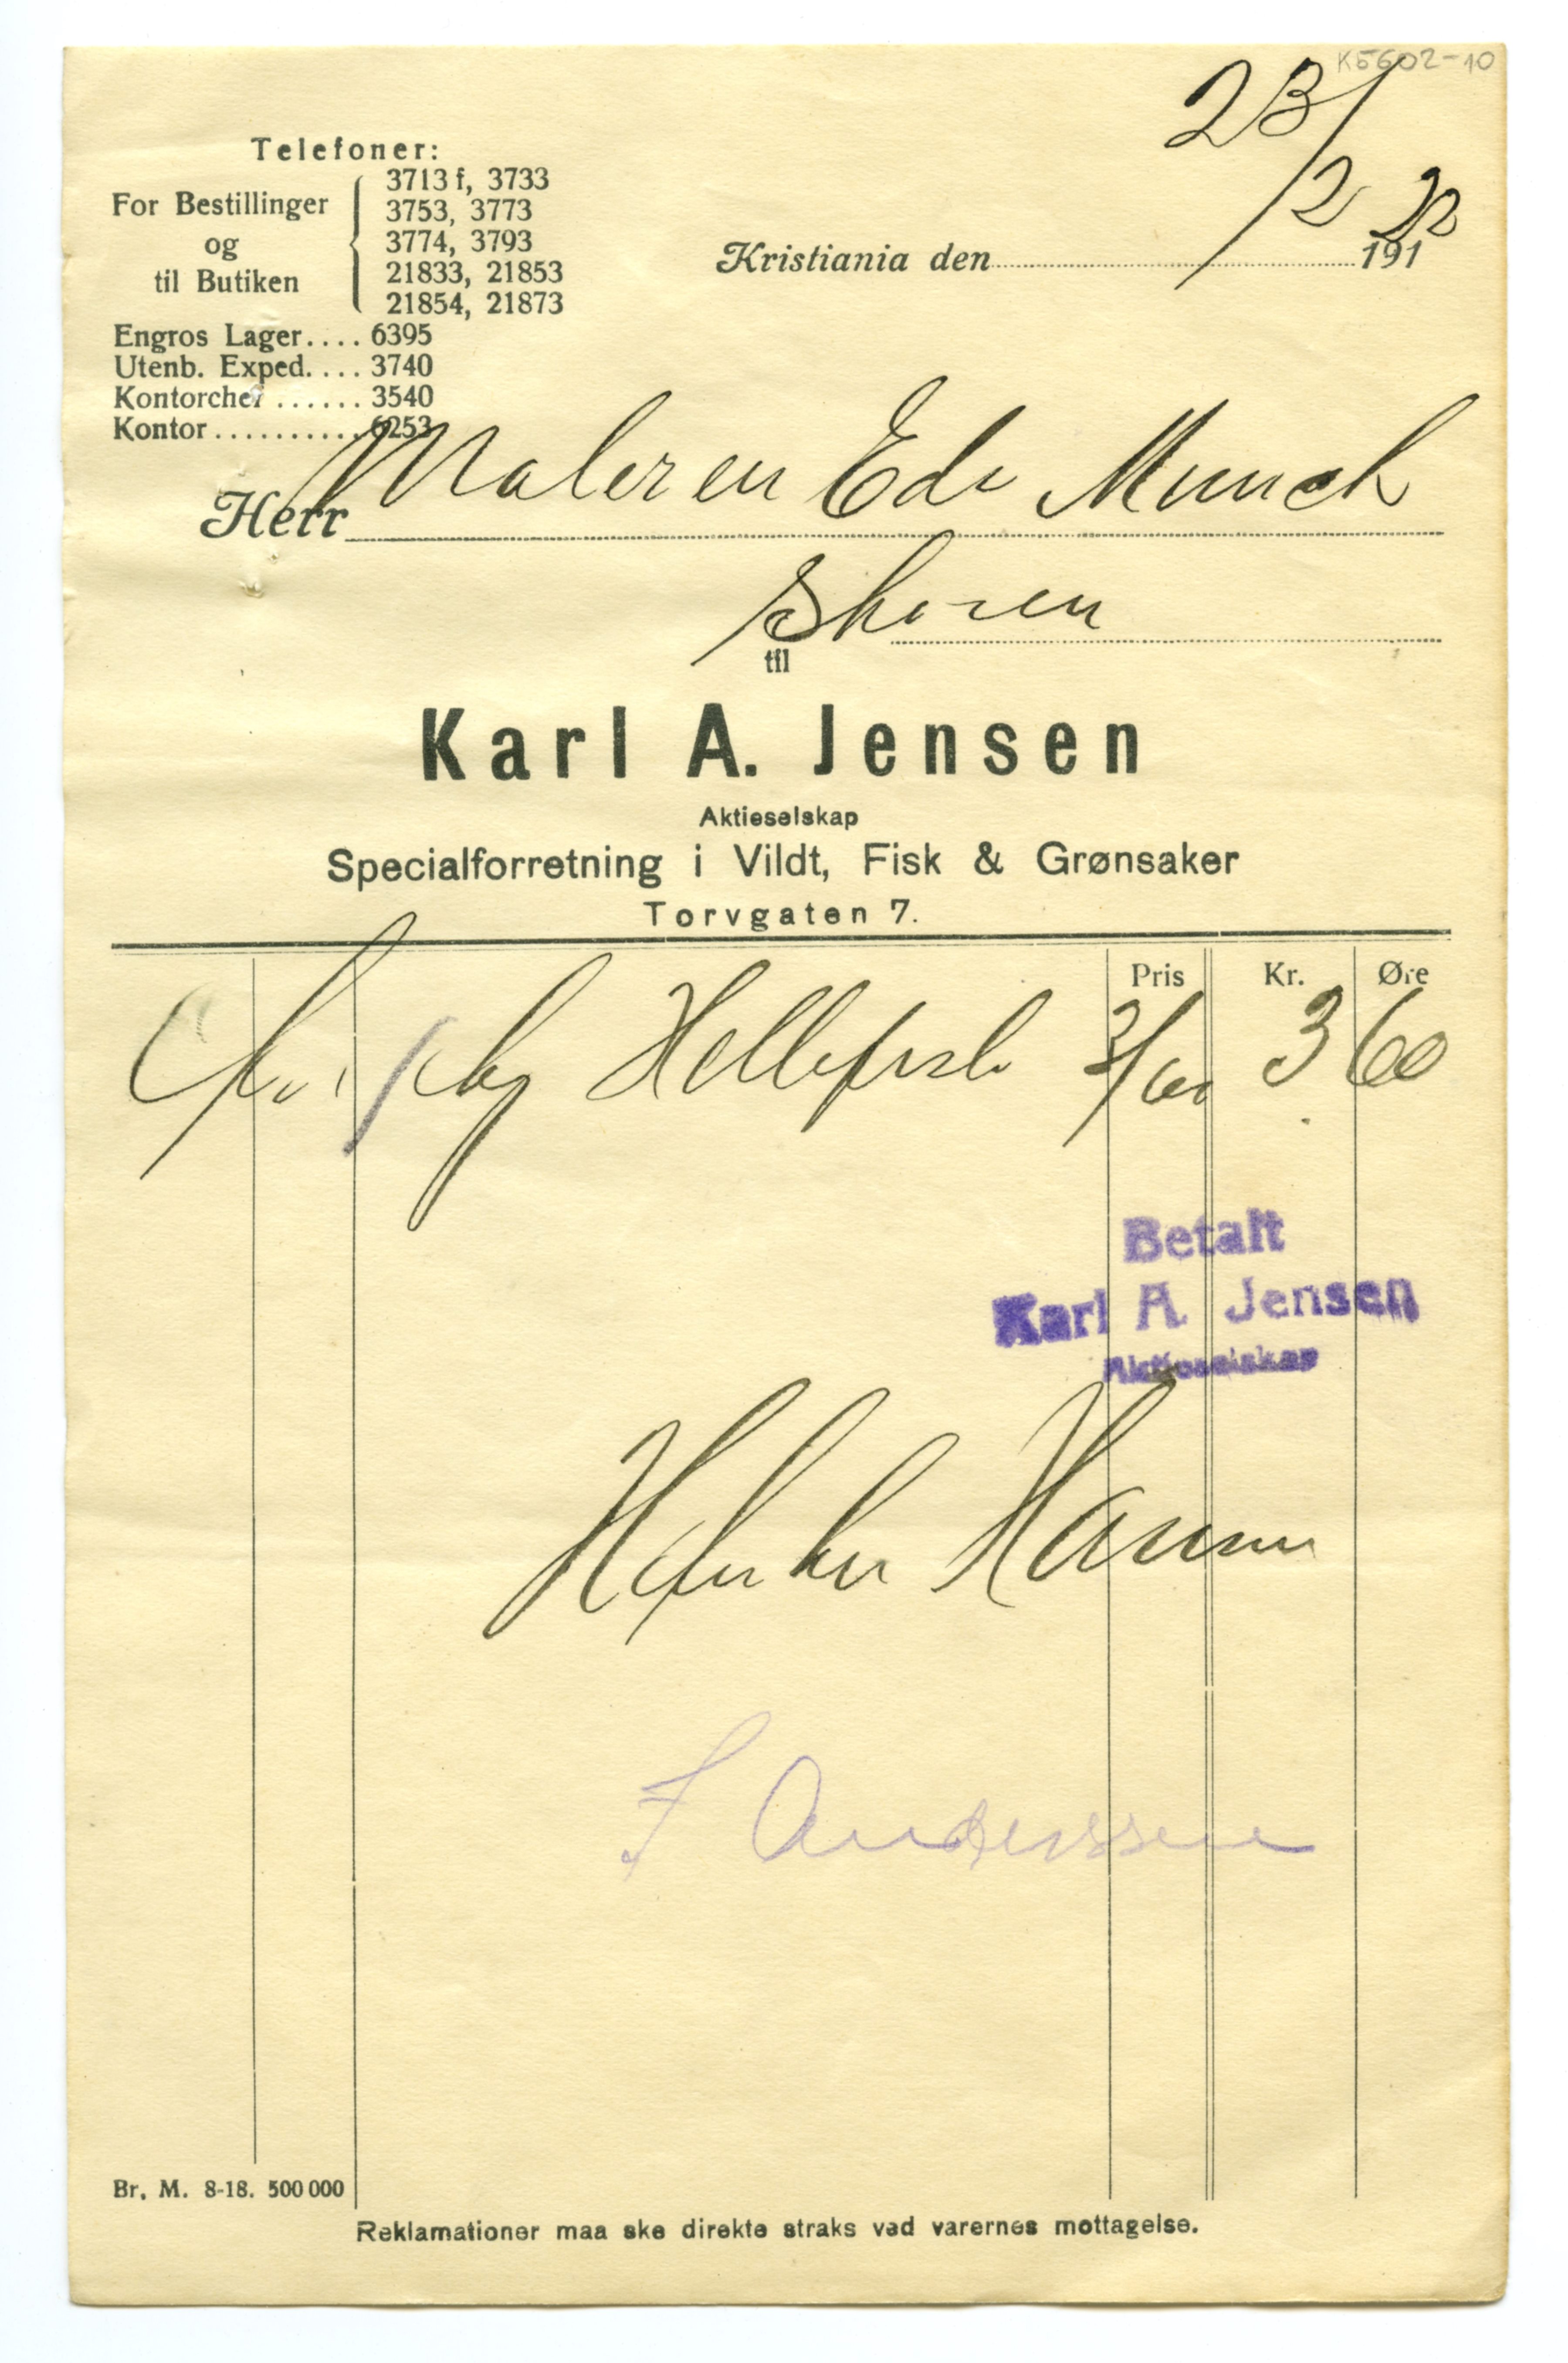 K5602-10
23/2 22
Telefoner:
For Bestillinger og til Butiken
3713 f, 3733
3753, 3773
3774, 3793
21833, 21853
21854, 21873
Engros Lager.... 6395
Utenb. Exped.... 3740
Kontorchef ...... 3540
Kontor.......... 6253
Kristiania den 191
Herr Maleren Edv Munch
Skøien
til
Karl A. Jensen
Aktieselskap
Specialforretning i Vildt, Fisk & Grønsaker
Torvgaten 7.
Pris Kr. Øre
1 kg Hellefisk 3/60 3 60
Betalt
Karl A. Jensen
Aktieselskap
Hansen
F Anderssen
Br. M. 8-18. 500 000
Reklamationer maa ske direkte straks ved varernes mottagelse.